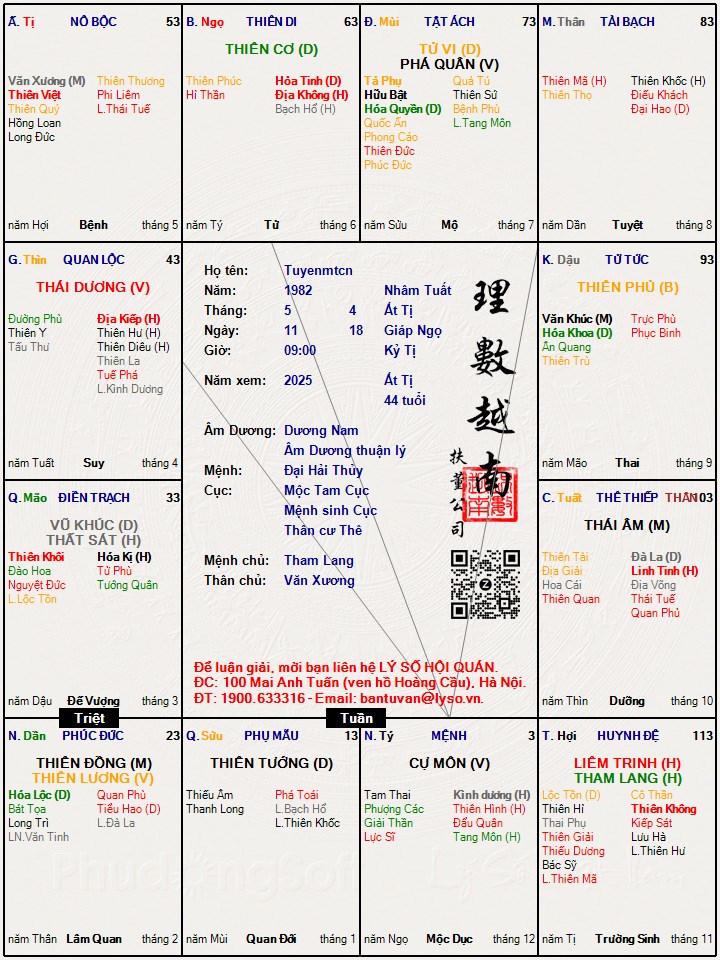 Ấ. Tị NÔ BỘC 53
Văn Xương (M) Thiên Thương
Thiên Việt Phi Liêm
Thiên Quý L.Thái Tuế
Hồng Loan
Long Đức
năm Hợi Bệnh tháng 5
B. Ngọ THIÊN DI 63
THIÊN CƠ (D)
Thiên Phúc Hỏa Tinh (D)
Hỉ Thần Địa Không (H)
Bạch Hổ (H)
năm Tý Tử tháng 6
Đ. Mùi TẬT ÁCH 73
TỬ VI (D)
PHÁ QUÂN (V)
Tả Phụ Quả Tú
Hữu Bật Thiên Sứ
Hóa Quyền (D) Bệnh Phù
Quốc Ấn L.Tang Môn
Phong Cáo
Thiên Đức
Phúc Đức
năm Sửu Mộ tháng 7
M. Thân TÀI BẠCH 83
Thiên Mã (H) Thiên Khốc (H)
Thiên Thọ Điếu Khách
Đại Hao (D)
năm Dần Tuyệt tháng 8
G. Thìn QUAN LỘC 43
THÁI DƯƠNG (V)
Đường Phù Địa Kiếp (H)
Thiên Y Thiên Hư (H)
Tấu Thư Thiên Diêu (H)
Thiên La
Tuế Phá
L.Kình Dương
năm Tuất Suy tháng 4
Họ tên: Tuyenmtcn
Năm: 1982 Nhâm Tuất
Tháng: 5 4 Ất Tị
Ngày: 11 18 Giáp Ngọ
Giờ: 09:00 Kỷ Tị
Năm xem: 2025 Ất Tị
44 tuổi
Âm Dương: Dương Nam
Âm Dương thuận lý
Mệnh: Đại Hải Thủy
Cục: Mộc Tam Cục
Mệnh sinh Cục
Thân cư Thê
Mệnh chủ: Tham Lang
Thân chủ: Văn Xương
理數越南
扶董公司
Để luận giải, mời bạn liên hệ LÝ SỐ HỘI QUÁN.
ĐC: 100 Mai Anh Tuấn (ven hồ Hoàng Cầu), Hà Nội.
ĐT: 1900.633316 - Email: bantuvan@lyso.vn.
K. Dậu TỬ TỨC 93
THIÊN PHỦ (B)
Văn Khúc (M) Trực Phù
Hóa Khoa (D) Phục Binh
Ân Quang
Thiên Trù
năm Mão Thai tháng 9
Q. Mão ĐIỀN TRẠCH 33
VŨ KHÚC (D)
THẤT SÁT (H)
Thiên Khôi Hóa Kị (H)
Đào Hoa Tử Phù
Nguyệt Đức Tướng Quân
L.Lộc Tồn
năm Dậu Đế Vượng tháng 3
C. Tuất THÊ THIẾP THÂN 103
THÁI ÂM (M)
Thiên Tài Đà La (D)
Địa Giải Linh Tinh (H)
Hoa Cái Địa Võng
Thiên Quan Thái Tuế
Quan Phủ
năm Thìn Dưỡng tháng 10
Triệt
Tuần
N. Dần PHÚC ĐỨC 23
THIÊN ĐỒNG (M)
THIÊN LƯƠNG (V)
Hóa Lộc (D) Quan Phù
Bát Tọa Tiểu Hao (D)
Long Trì L.Đà La
LN.Văn Tinh
năm Thân Lâm Quan tháng 2
Q. Sửu PHỤ MẪU 13
THIÊN TƯỚNG (D)
Thiếu Âm Phá Toái
Thanh Long L.Bạch Hổ
L.Thiên Khốc
năm Mùi Quan Đới tháng 1
N. Tý MỆNH 3
CỰ MÔN (V)
Tam Thai Kình dương (H)
Phượng Các Thiên Hình (H)
Giải Thần Đẩu Quân
Lực Sĩ Tang Môn (H)
năm Ngọ Mộc Dục tháng 12
T. Hợi HUYNH ĐỆ 113
LIÊM TRINH (H)
THAM LANG (H)
Lộc Tồn (D) Cô Thần
Thiên Hỉ Thiên Không
Thai Phụ Kiếp Sát
Thiên Giải Lưu Hà
Thiếu Dương L.Thiên Hư
Bác Sỹ
L.Thiên Mã
năm Tị Trường Sinh tháng 11